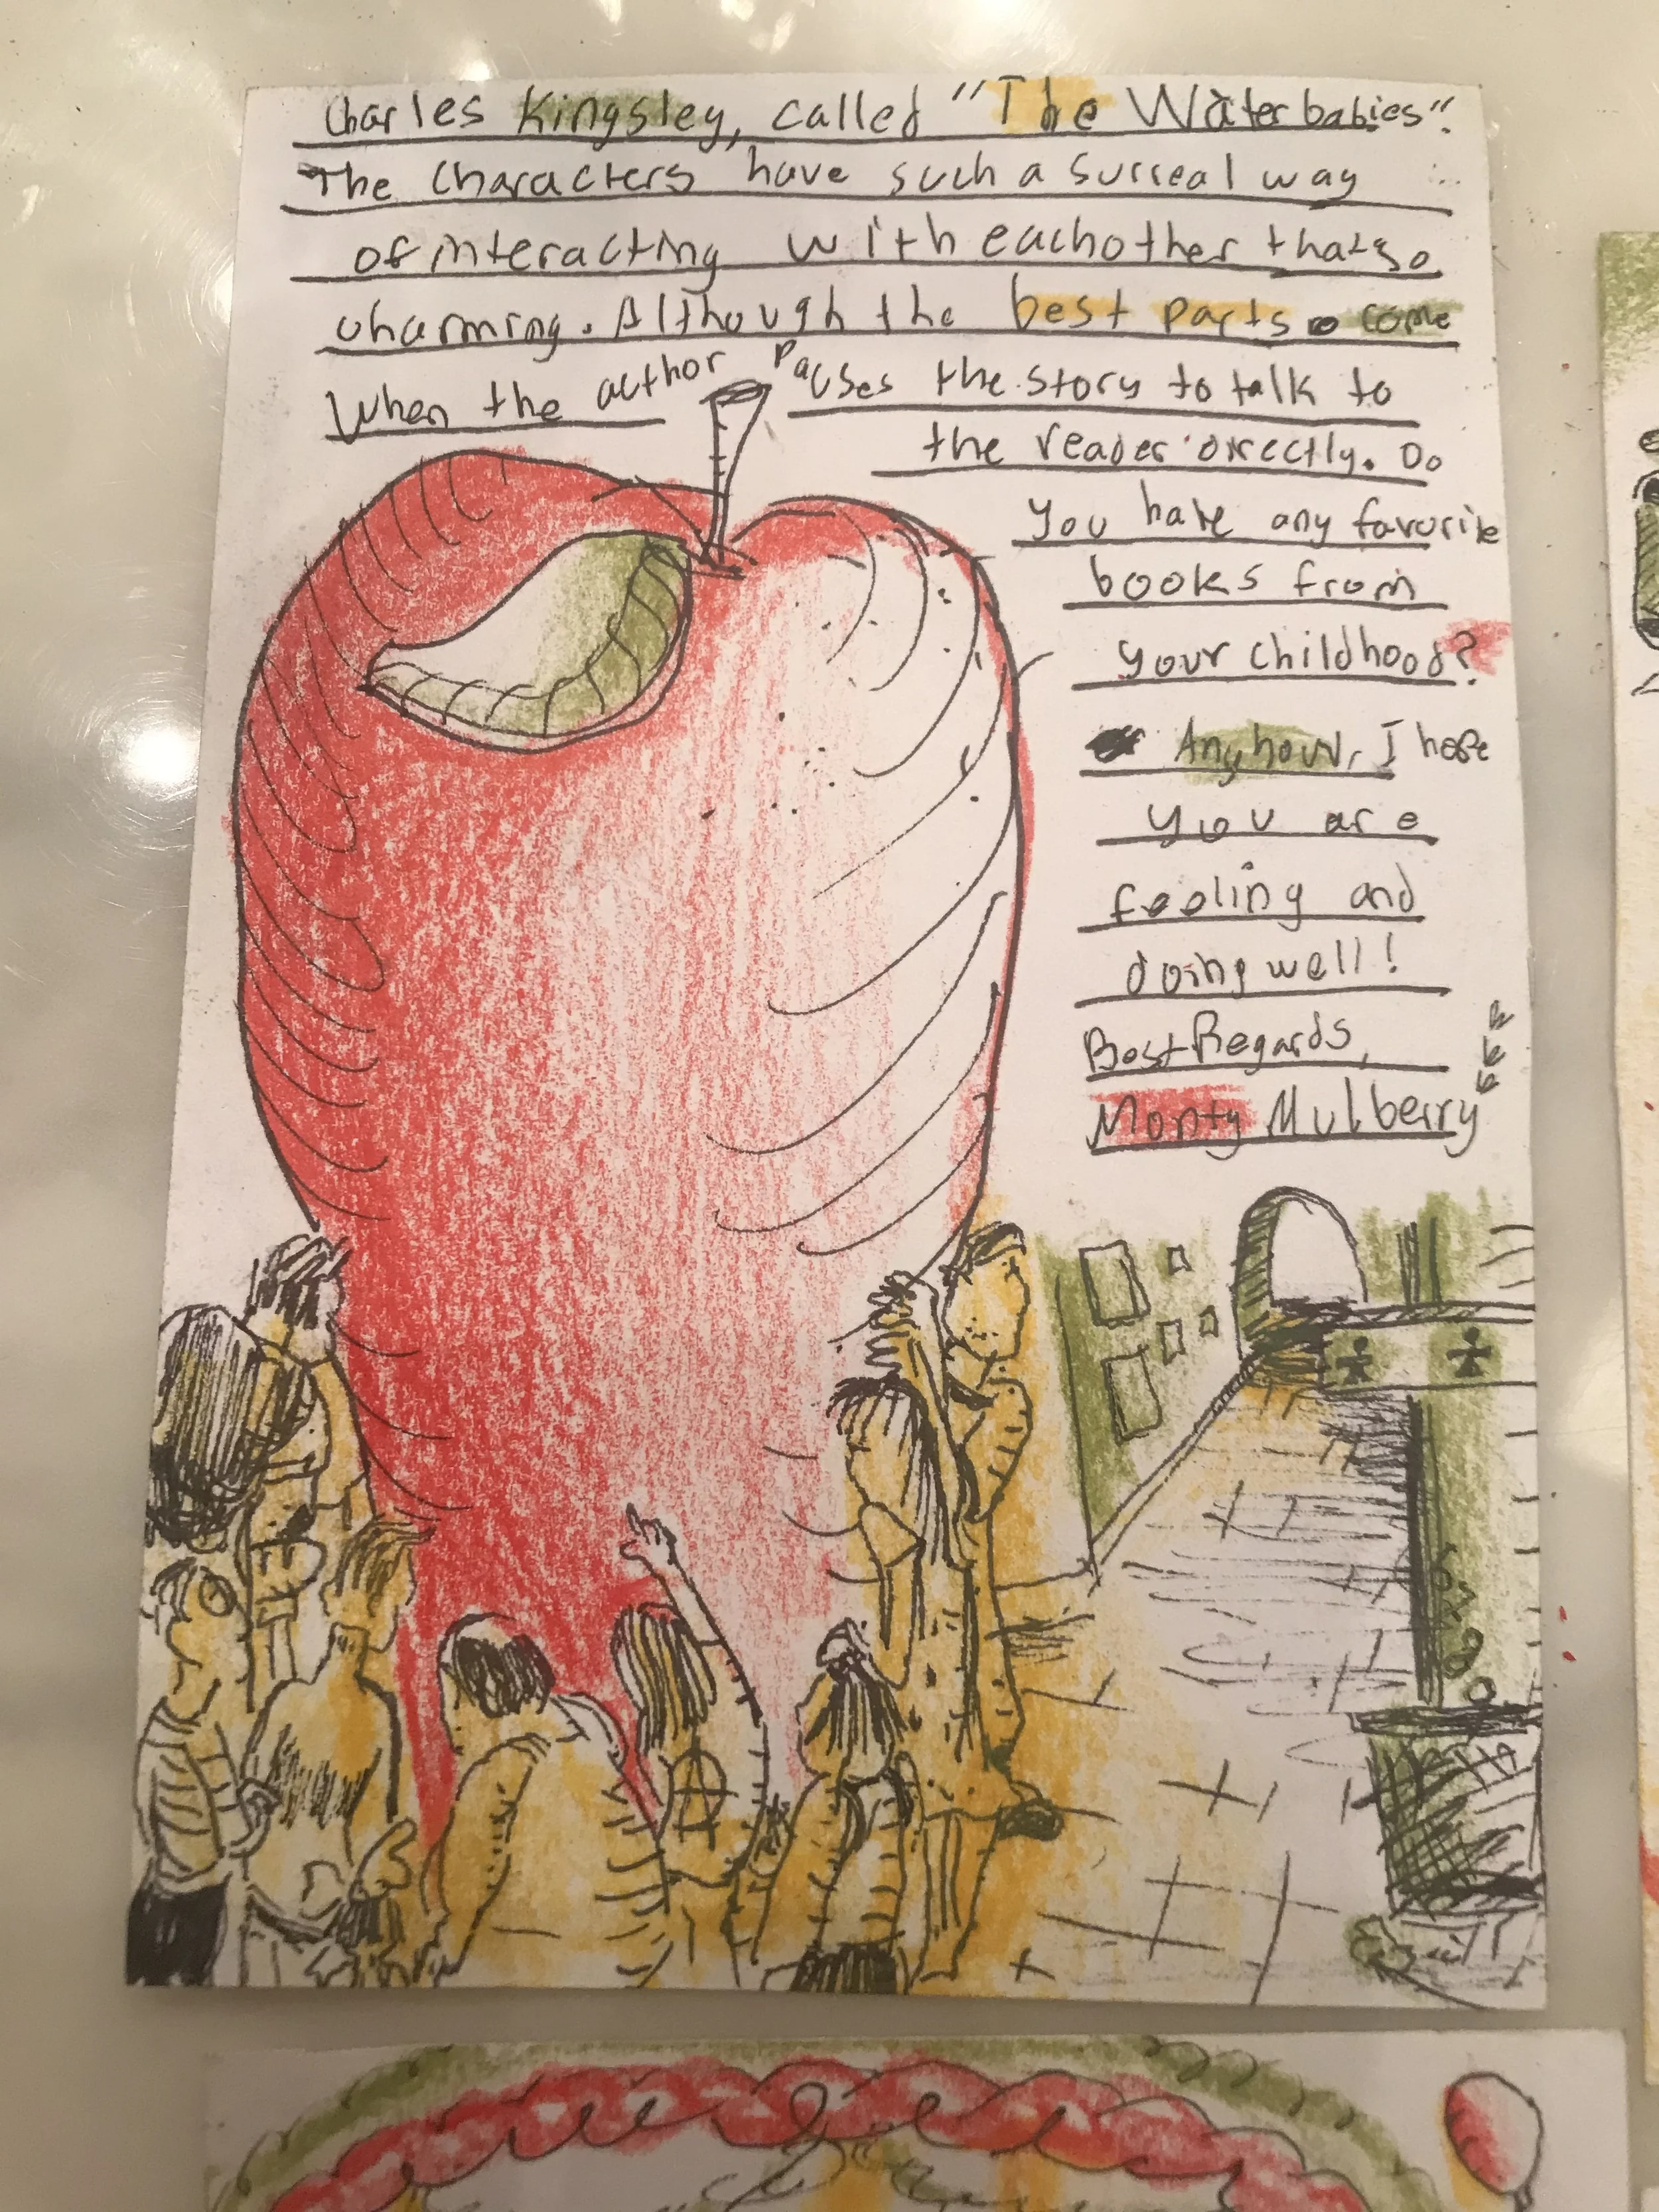 Charles Kingsley, called "The Waterbabies".
The Characters have such a surreal way
of interacting with eachother thats so
charming. Although the best parts come
When the author pauses the story to talk to
the reader directly. Do
you have any favorite
books from
your childhood?
Anyhow, I hope
you are
feeling and
doing well!
Best Regards,
Monty Mulberry